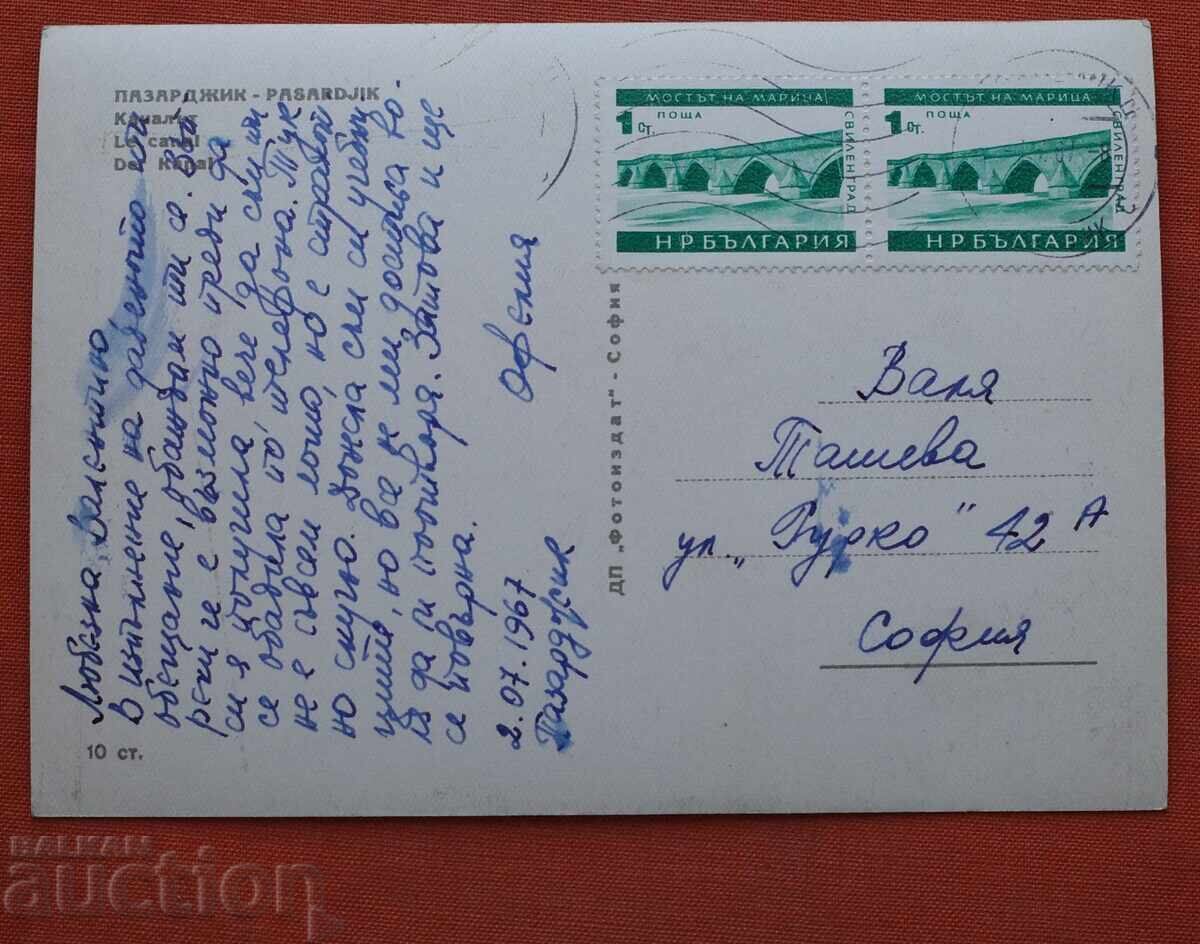 ПАЗАРДЖИК - PASARDJIK
Каналът
Le canal
Der Kanal
Любезна Валентино,
В изпълнение на даденото ми
обещание, обаждам ти се. Зато
реки и е възможно преди да
си я получила, вече да съм ти
се обадила по телефона. Тук
не е съвсем лошо, но е страшно
но скучно. Донесла съм си учебни
ците, но все не ми достига во-
ля да ги поотворя. Затова и ще
се повърна.
2.07.1967
Пазарджик
10 ст.
ДП „Фотоиздат" - София
МОСТЪТ НА МАРИЦА
ПОЩА
1 СТ.
СВИЛЕНГРАД
НР БЪЛГАРИЯ
МОСТЪТ НА МАРИЦА
ПОЩА
1 СТ.
СВИЛЕНГРАД
НР БЪЛГАРИЯ
Валя
Ташева
ул. „Гурко" 42 А
София
BALKAN
auction